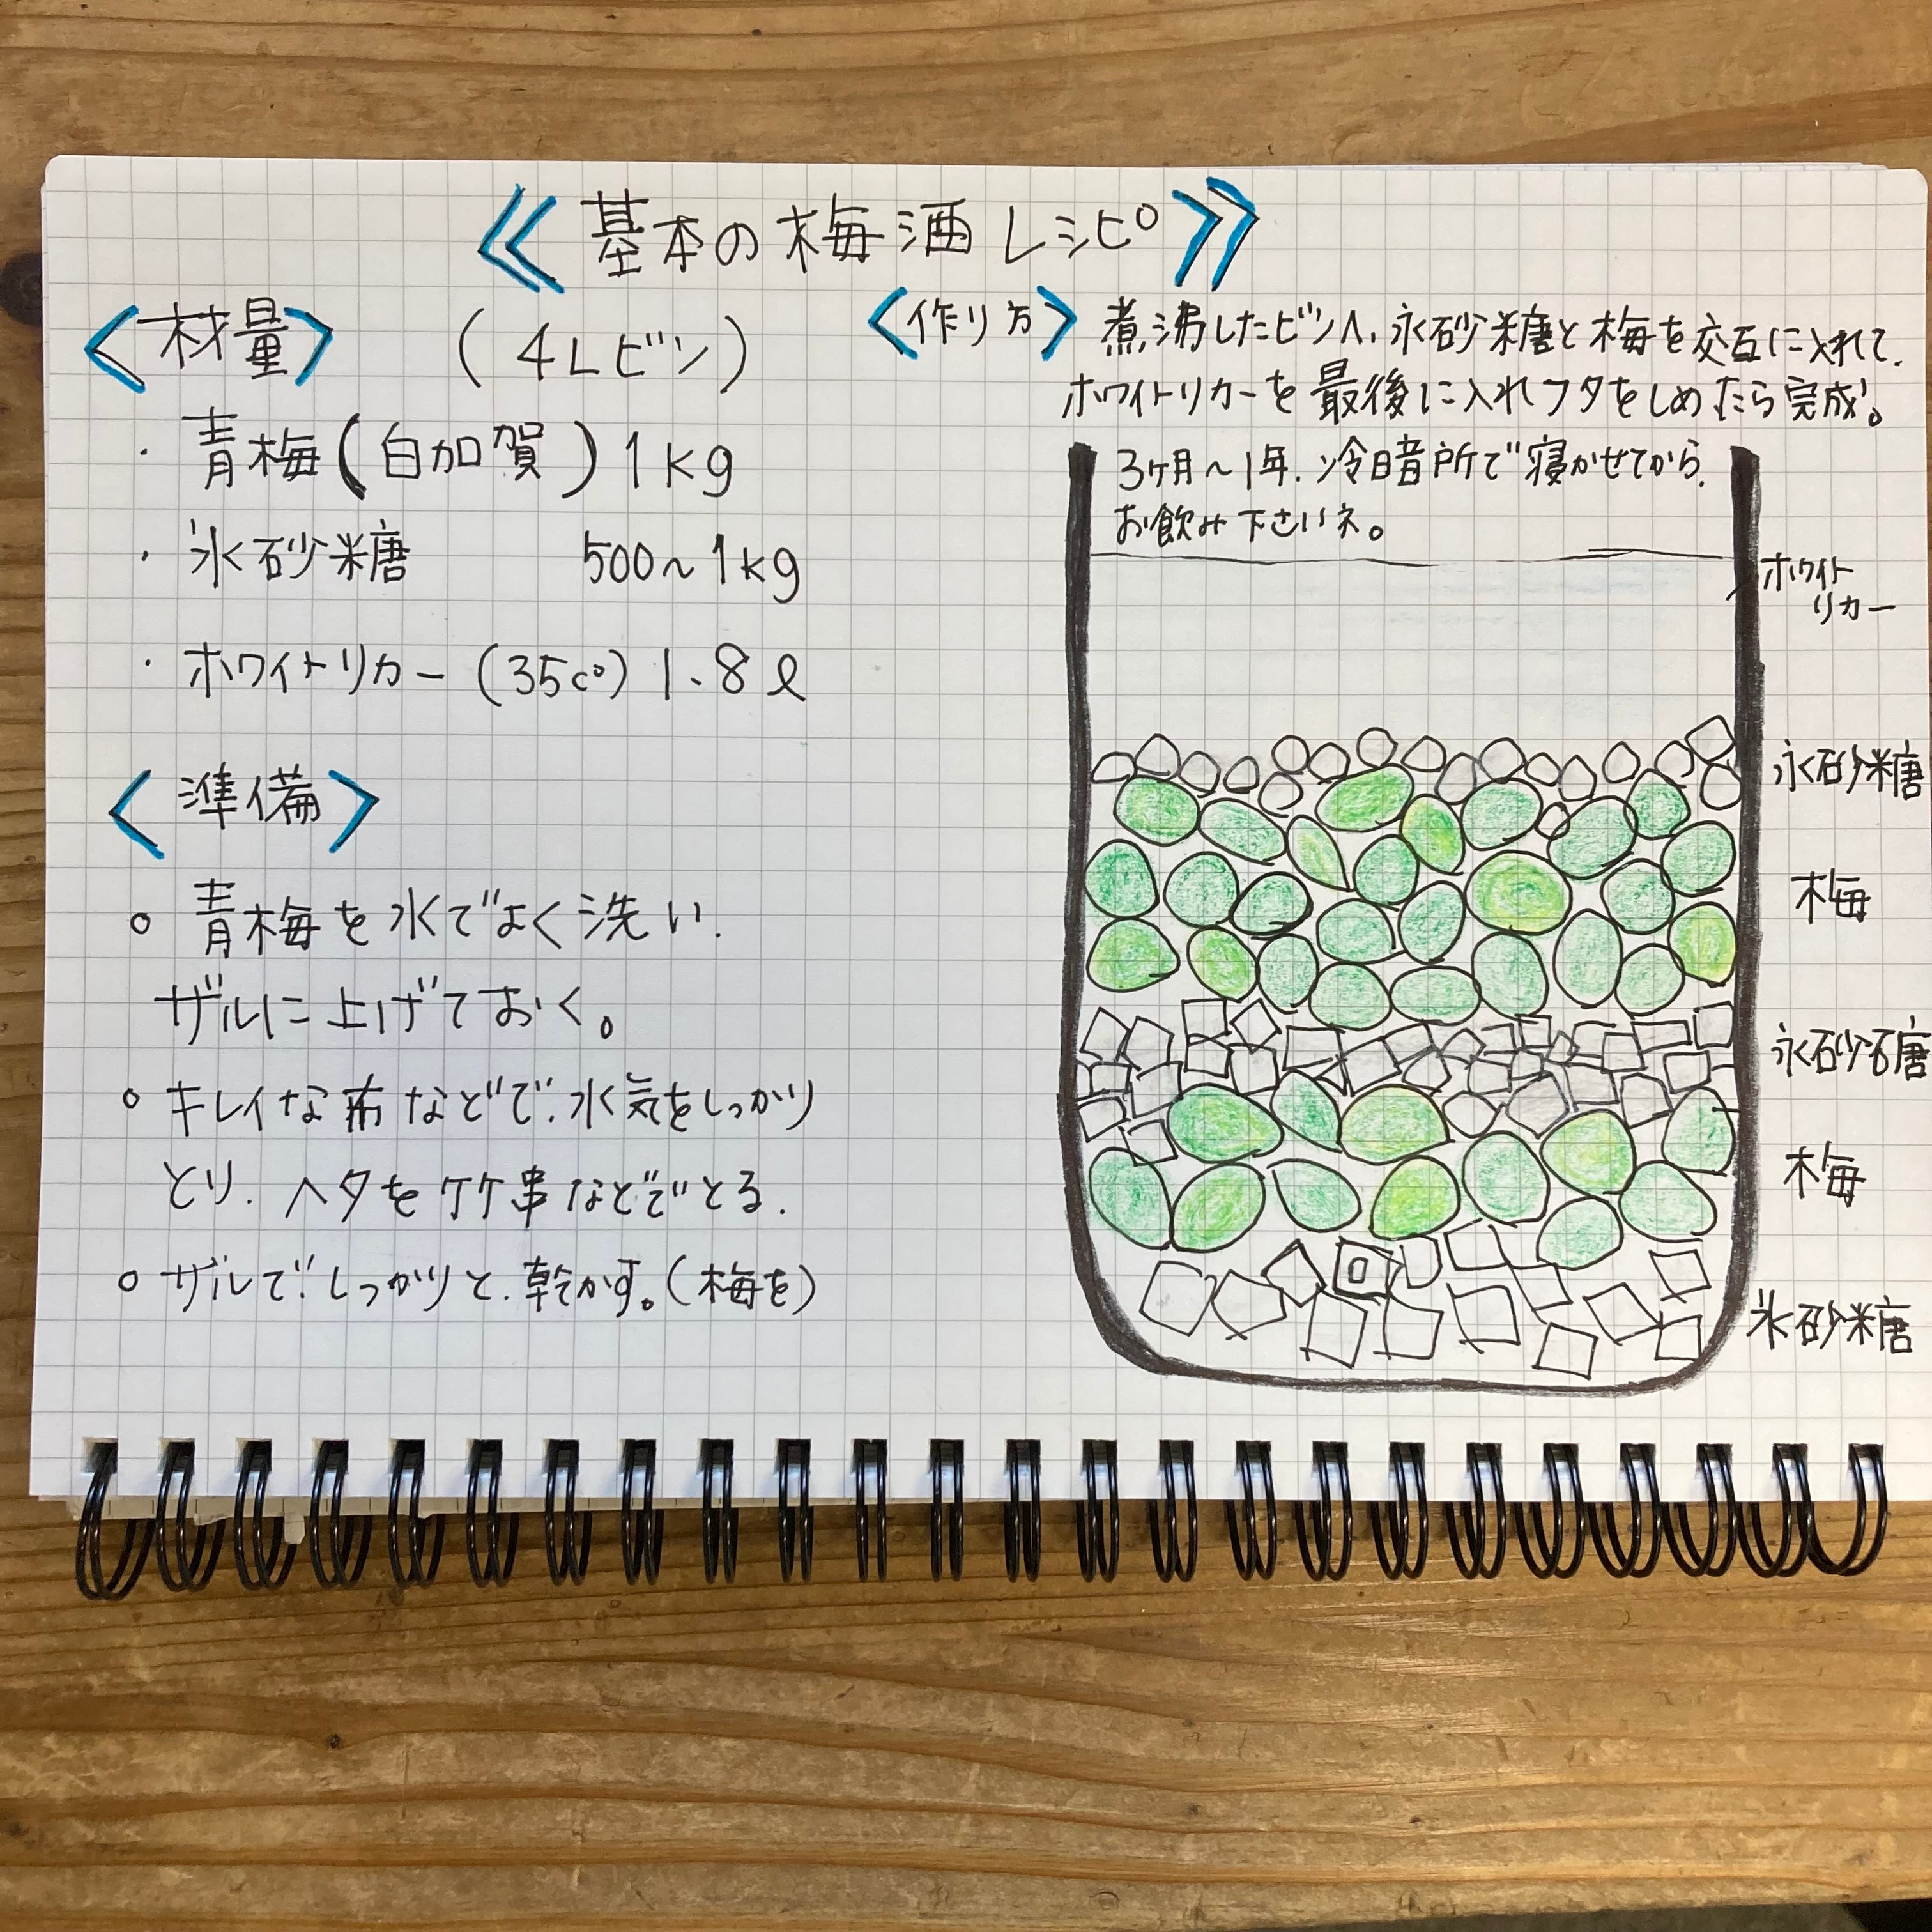 ≪基本の梅酒レシピ≫
<材量> (4Lビン)
・青梅(白加賀)1kg
・氷砂糖 500~1kg
・ホワイトリカー(35c°)1.8ℓ
<準備>
○青梅を水でよく洗い.
ザルに上げておく。
○キレイな布などで.水気をしっかり
とり.ヘタを竹串などでとる.
○ザルで.しっかりと.乾かす。(梅を)
<作り方>煮沸したビンへ.氷砂糖と梅を交互に入れて.
ホワイトリカーを最後に入れフタをしめたら完成。
3ヶ月~1年.冷暗所で寝かせてから.
お飲み下さいネ。
ホワイト
リカー
氷砂糖
梅
氷砂糖
梅
氷砂糖